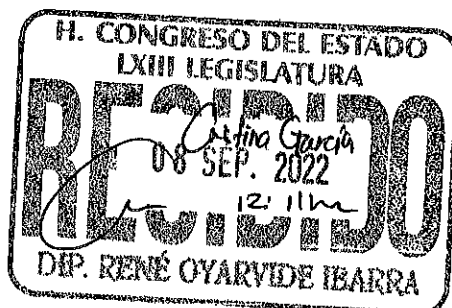 H. CONGRESO DEL ESTADO
LXIII LEGISLATURA
RECIBIDO
Cristina García
08 SEP. 2022
12:11
DIP. RENÉ OYARVIDE IBARRA